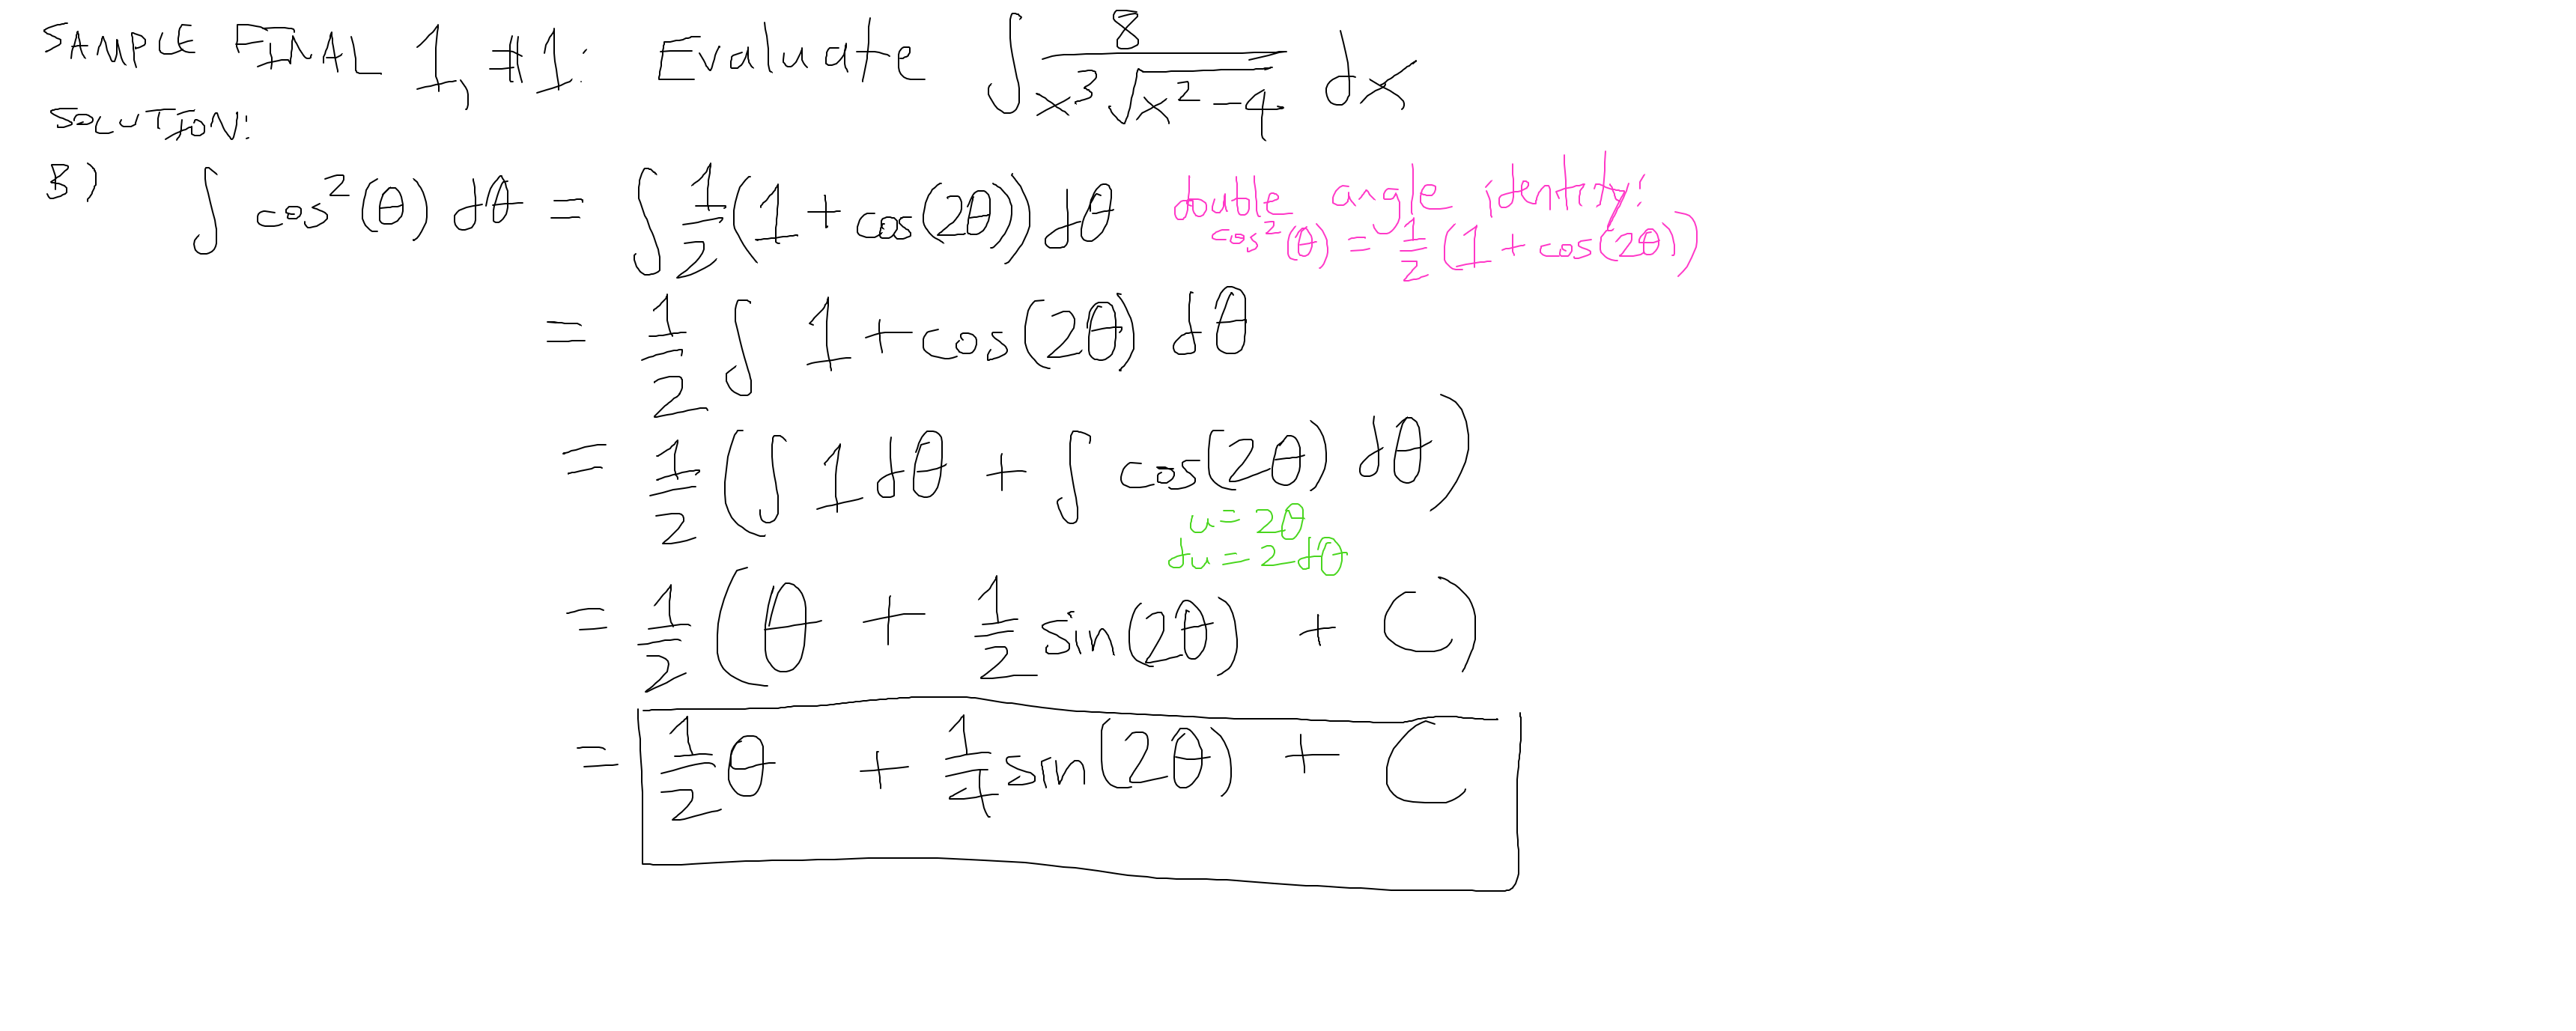 SAMPLE FINAL 1, #1: Evaluate ∫ 8/(x³√(x²-4)) dx
SOLUTION:
B) ∫ cos²(θ) dθ = ∫ 1/2 (1 + cos(2θ)) dθ
double angle identity:
cos²(θ) = 1/2 (1 + cos(2θ))
= 1/2 ∫ 1 + cos(2θ) dθ
= 1/2 (∫ 1 dθ + ∫ cos(2θ) dθ)
u = 2θ
du = 2 dθ
= 1/2 (θ + 1/2 sin(2θ) + C)
= 1/2 θ + 1/4 sin(2θ) + C